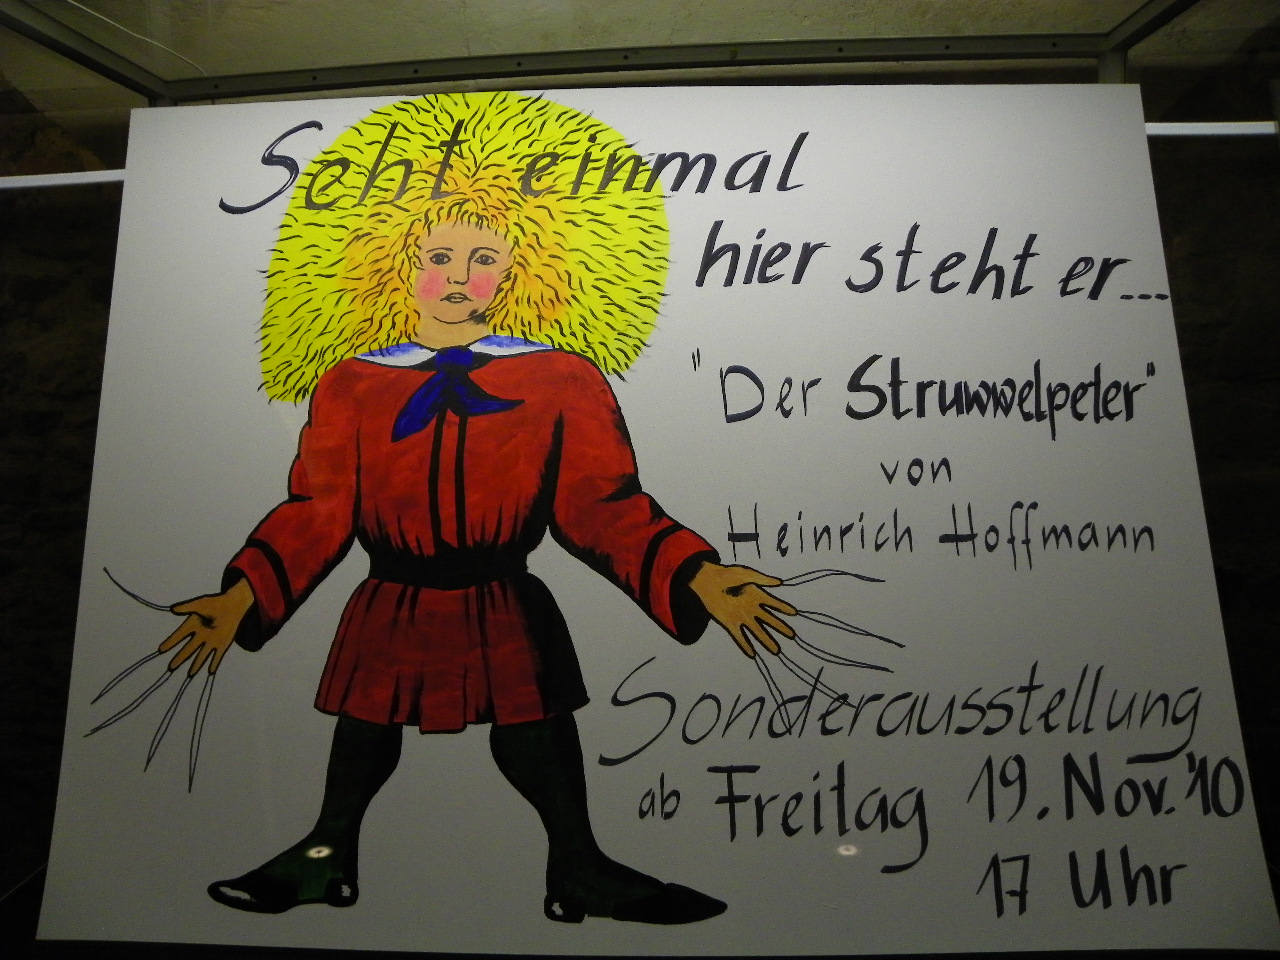 Seht einmal
hier steht er...
"Der Struwwelpeter"
von
Heinrich Hoffmann
Sonderausstellung
ab Freitag 19. Nov. '10
17 Uhr